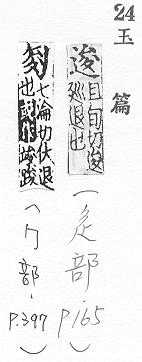 24
玉篇
逡 且旬切逡
巡退也
(辵部.P.165)
七倫切伏退
也
(勹部.P.397)